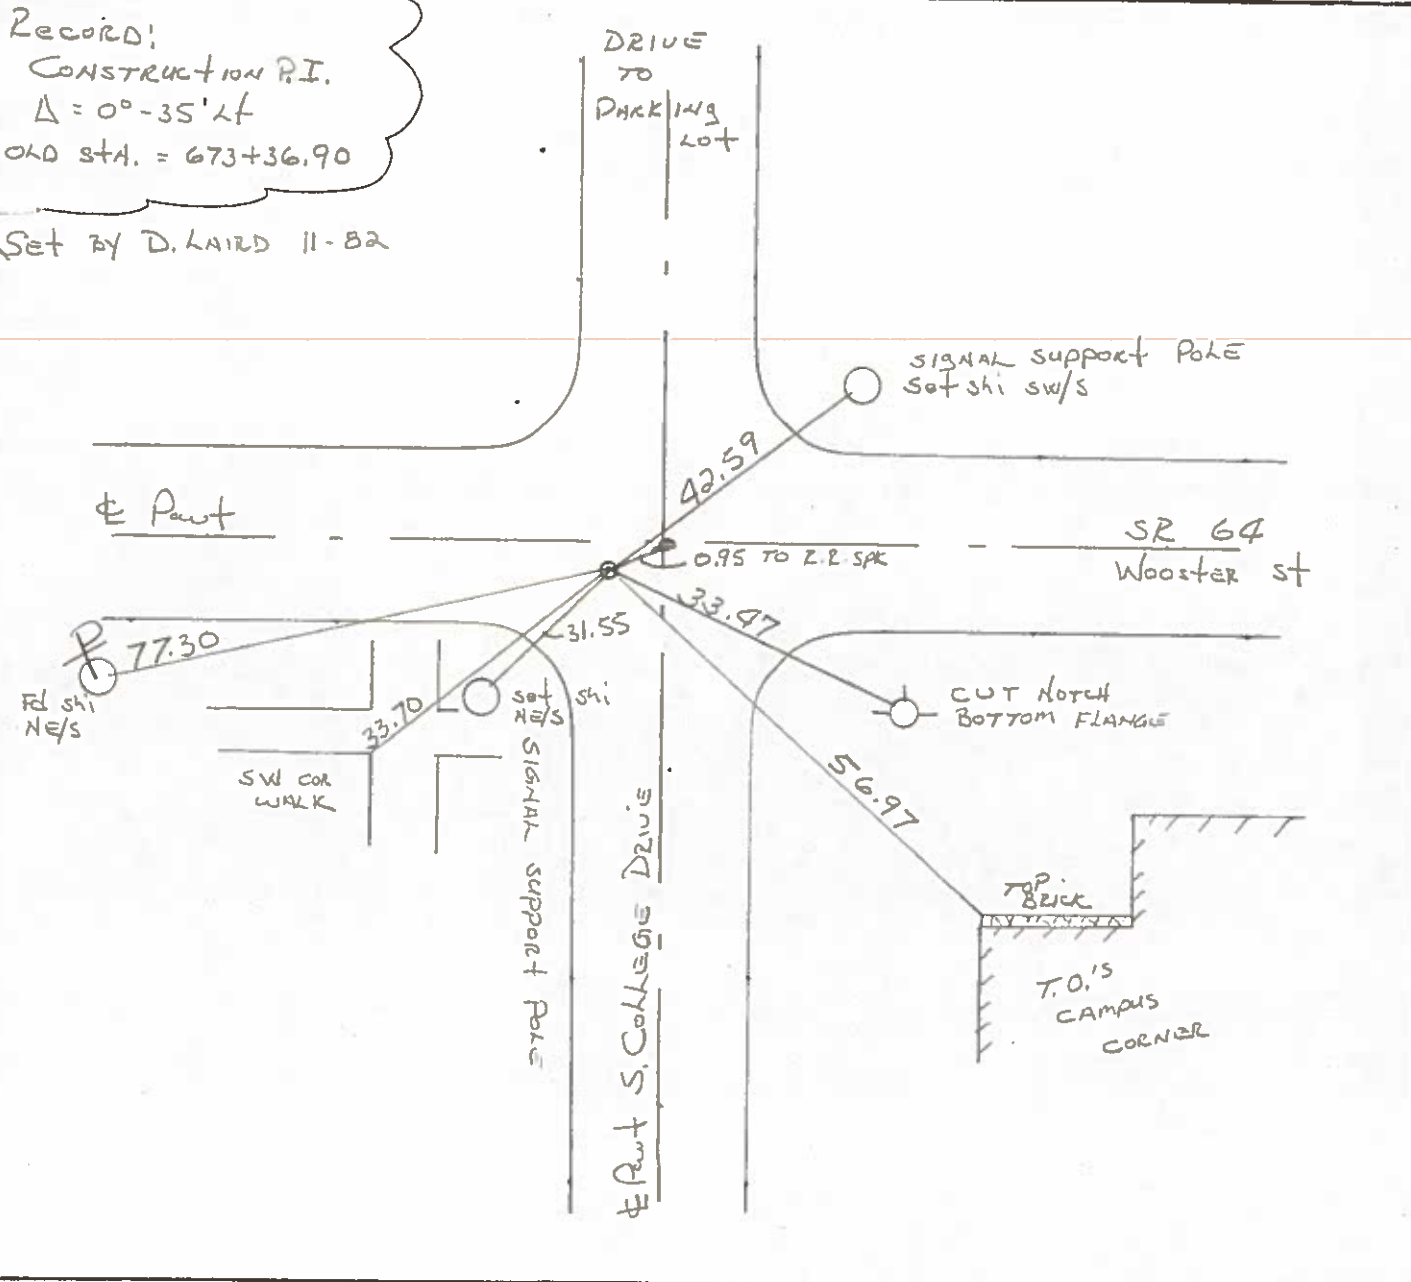 RECORD:
CONSTRUCTION P.I.
Δ = 0°-35' Lt
OLD STA. = 673+36.90
Set BY D. LAIRD 11-82
DRIVE
TO
PARKING
LOT
SIGNAL SUPPORT POLE
Set shi SW/S
42.59
℄ Pavt
SR 64
WOOSTER St
0.95 TO R.R. SPK
33.47
31.55
P
77.30
Fd shi
NE/S
33.70
set shi
NE/S
SIGNAL SUPPORT POLE
SW COR
WALK
CUT NOTCH
BOTTOM FLANGE
56.97
℄ Pavt S. COLLEGE DRIVE
TOP
BRICK
T.O.'S
CAMPUS
CORNER